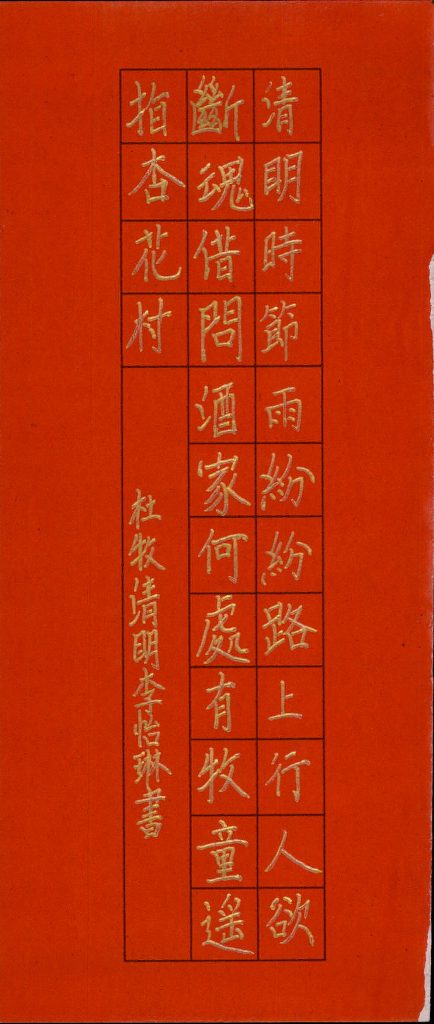 清明時節雨紛紛路上行人欲
斷魂借問酒家何處有牧童遥
指杏花村
杜牧清明李怡琳書